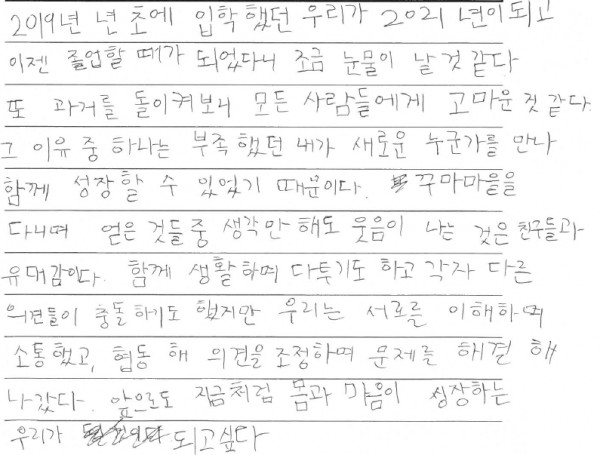 2019년 년 초에 입학했던 우리가 2021년이 되고
이젠 졸업할 때가 되었다니 조금 눈물이 날 것 같다
또 과거를 돌이켜보니 모든 사람들에게 고마운 것 같다.
그 이유 중 하나는 부족했던 내가 새로운 누군가를 만나
함께 성장할 수 있었기 때문이다. 꾸마마을을
다니며 얻은 것들 중 생각만 해도 웃음이 나는 것은 친구들과
유대감이다. 함께 생활하며 다투기도 하고 각자 다른
의견들이 충돌하기도 했지만 우리는 서로를 이해하며
소통했고, 협동해 의견을 조정하며 문제를 해결해
나갔다. 앞으로도 지금처럼 몸과 마음이 성장하는
우리가 되고싶다